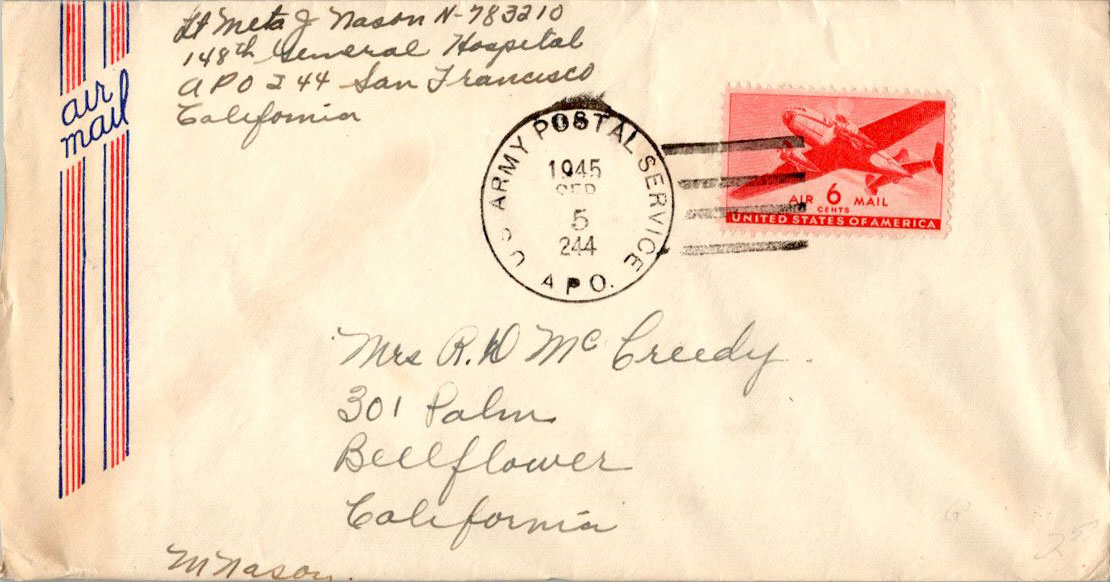 Lt Meta J Nason N-783210
148th General Hospital
APO 244 San Francisco
California
air
mail
U.S. ARMY POSTAL SERVICE
1945
SEP
5
244
A.P.O.
AIR 6 MAIL
CENTS
UNITED STATES OF AMERICA
Mrs R.D McCreedy
301 Palm
Bellflower
California
M Nason.